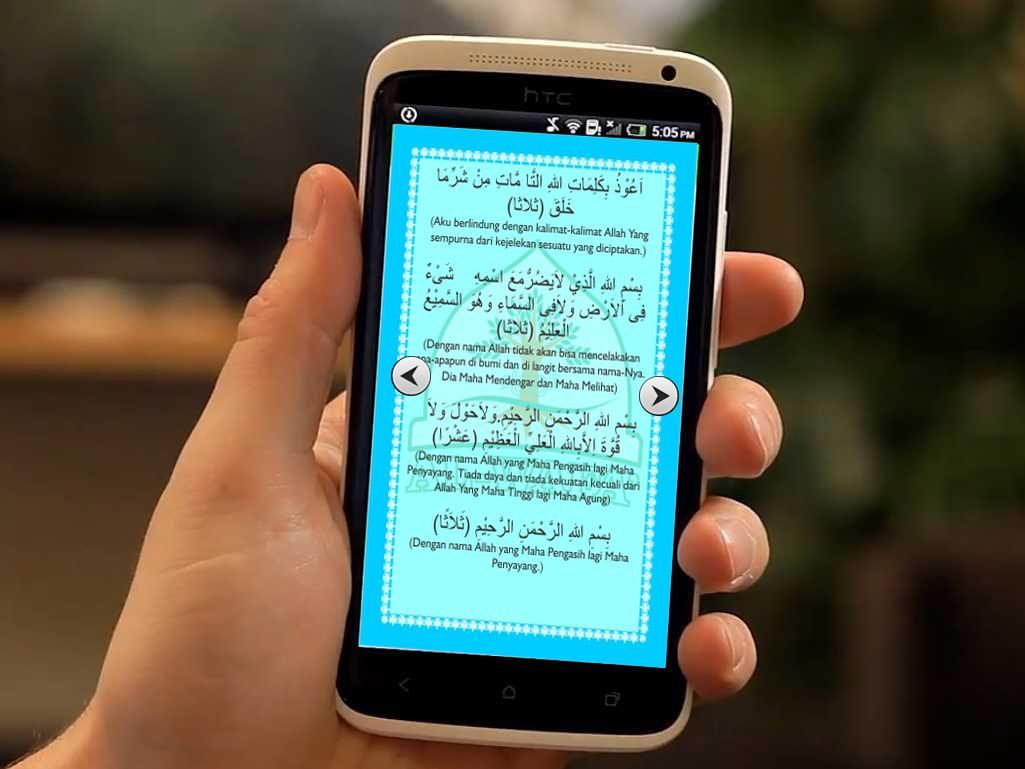 hTC
5:05 PM
اَعُوْذُ بِكَلِمَاتِ اللهِ التَّا مَّاتِ مِنْ شَرِّمَا
خَلَقَ (ثلاثا)
(Aku berlindung dengan kalimat-kalimat Allah Yang
sempurna dari kejelekan sesuatu yang diciptakan.)
بِسْمِ اللهِ الَّذِيْ لاَيَضُرُّمَعَ اسْمِهِ شَىْءٌ
فِى اْلاَرْضِ وَلاَفِى السَّمَاءِ وَهُوَ السَّمِيْعُ
الْعَلِيْمُ (ثلاثا)
(Dengan nama Allah tidak akan bisa mencelakakan
-apapun di bumi dan di langit bersama nama-Nya.
Dia Maha Mendengar dan Maha Melihat)
بِسْمِ اللهِ الرَّحْمَنِ الرَّحِيْمِ.وَلاَحَوْلَ وَلاَ
قُوَّةَ اِلاَّبِاللهِ الْعَلِيِّ الْعَظِيْمِ (عَشْرًا)
(Dengan nama Allah yang Maha Pengasih lagi Maha
Penyayang. Tiada daya dan tiada kekuatan kecuali dari
Allah Yang Maha Tinggi lagi Maha Agung)
بِسْمِ اللهِ الرَّحْمَنِ الرَّحِيْمِ (ثَلاَثًا)
(Dengan nama Allah yang Maha Pengasih lagi Maha
Penyayang.)